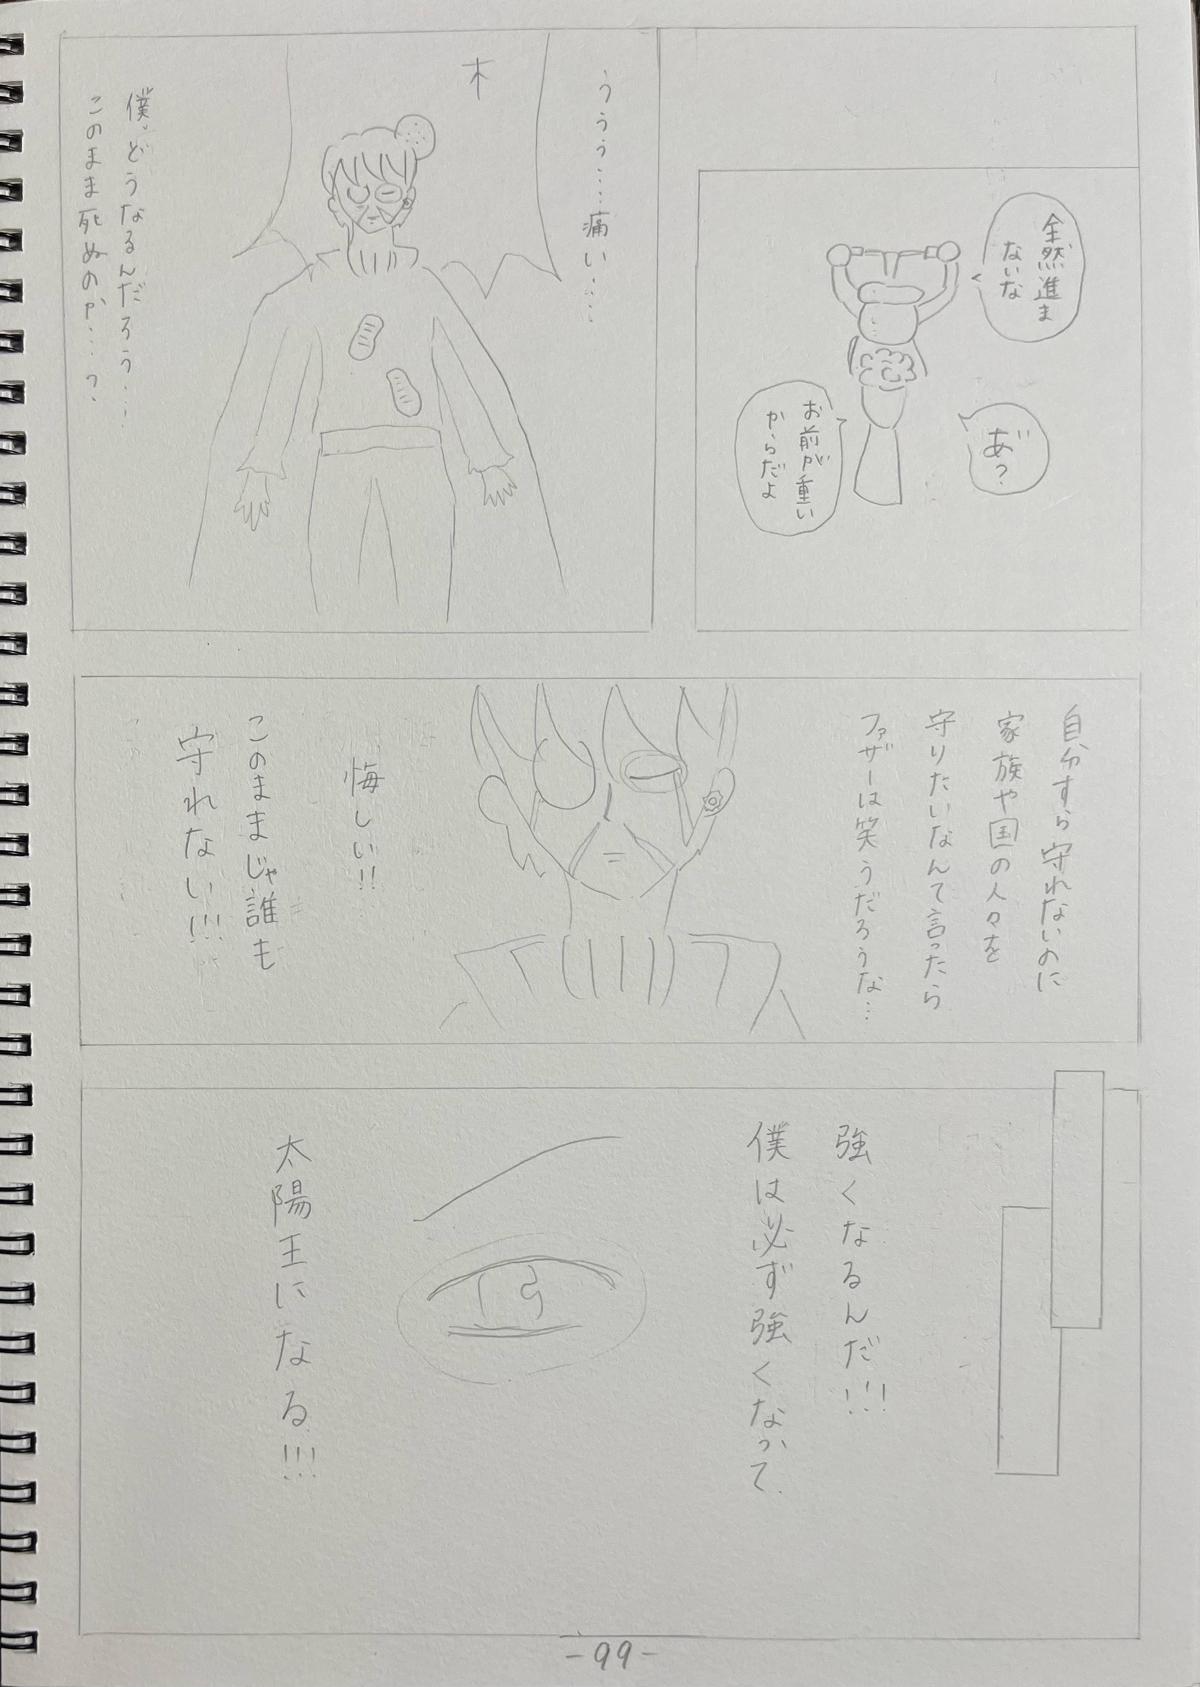 全然進ま
ないな
あ゛?
お前が重い
からだよ
ううう…痛い……
木
僕、どうなるんだろう…
このまま死ぬのか…?
自分すら守れないのに
家族や国の人々を
守りたいなんて言ったら
ファザーは笑うだろうな…
悔しい!!
このままじゃ誰も
守れない!!!
強くなるんだ!!!
僕は必ず強くなって
太陽王になる!!!
-99-